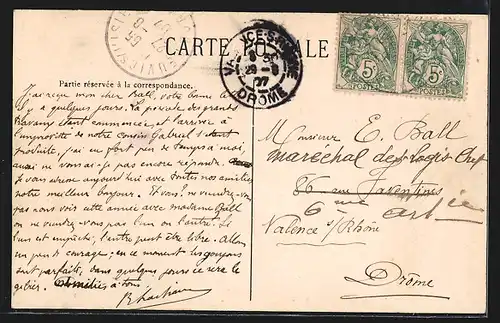 CARTE POSTALE
VALENCE-S-RHONE
26 -8
07
DRÔME
5c
5c
POSTES
POSTES
Partie réservée à la correspondance.
J'ai reçu mon cher Ball, votre bonne lettre
il y a quelques jours. La période des grands
travaux étant commencée et l'arrivée à
l'improviste de notre cousin Gabriel s'étant
produite, j'ai eu fort peu de temps à moi,
aussi ne vous ai-je pas encore répondu.
Je vous adresse aujourd'hui avec toutes nos amitiés
notre meilleur bonjour. Et vous, ne viendrez-vous
pas nous voir cette année avec madame Ball
on ne viendrez-vous pas l'un ou l'autre. Si
l'un est empêché, l'autre peut être libre. Allons
un peu de courage; en ce moment les goujons
sont parfaits, dans quelques jours ce sera le
gibier. Amitiés à vous
Monsieur E. Ball
maréchal des logis Chef
86 rue Faventines
6ème artie
Valence s/Rhône
Drôme